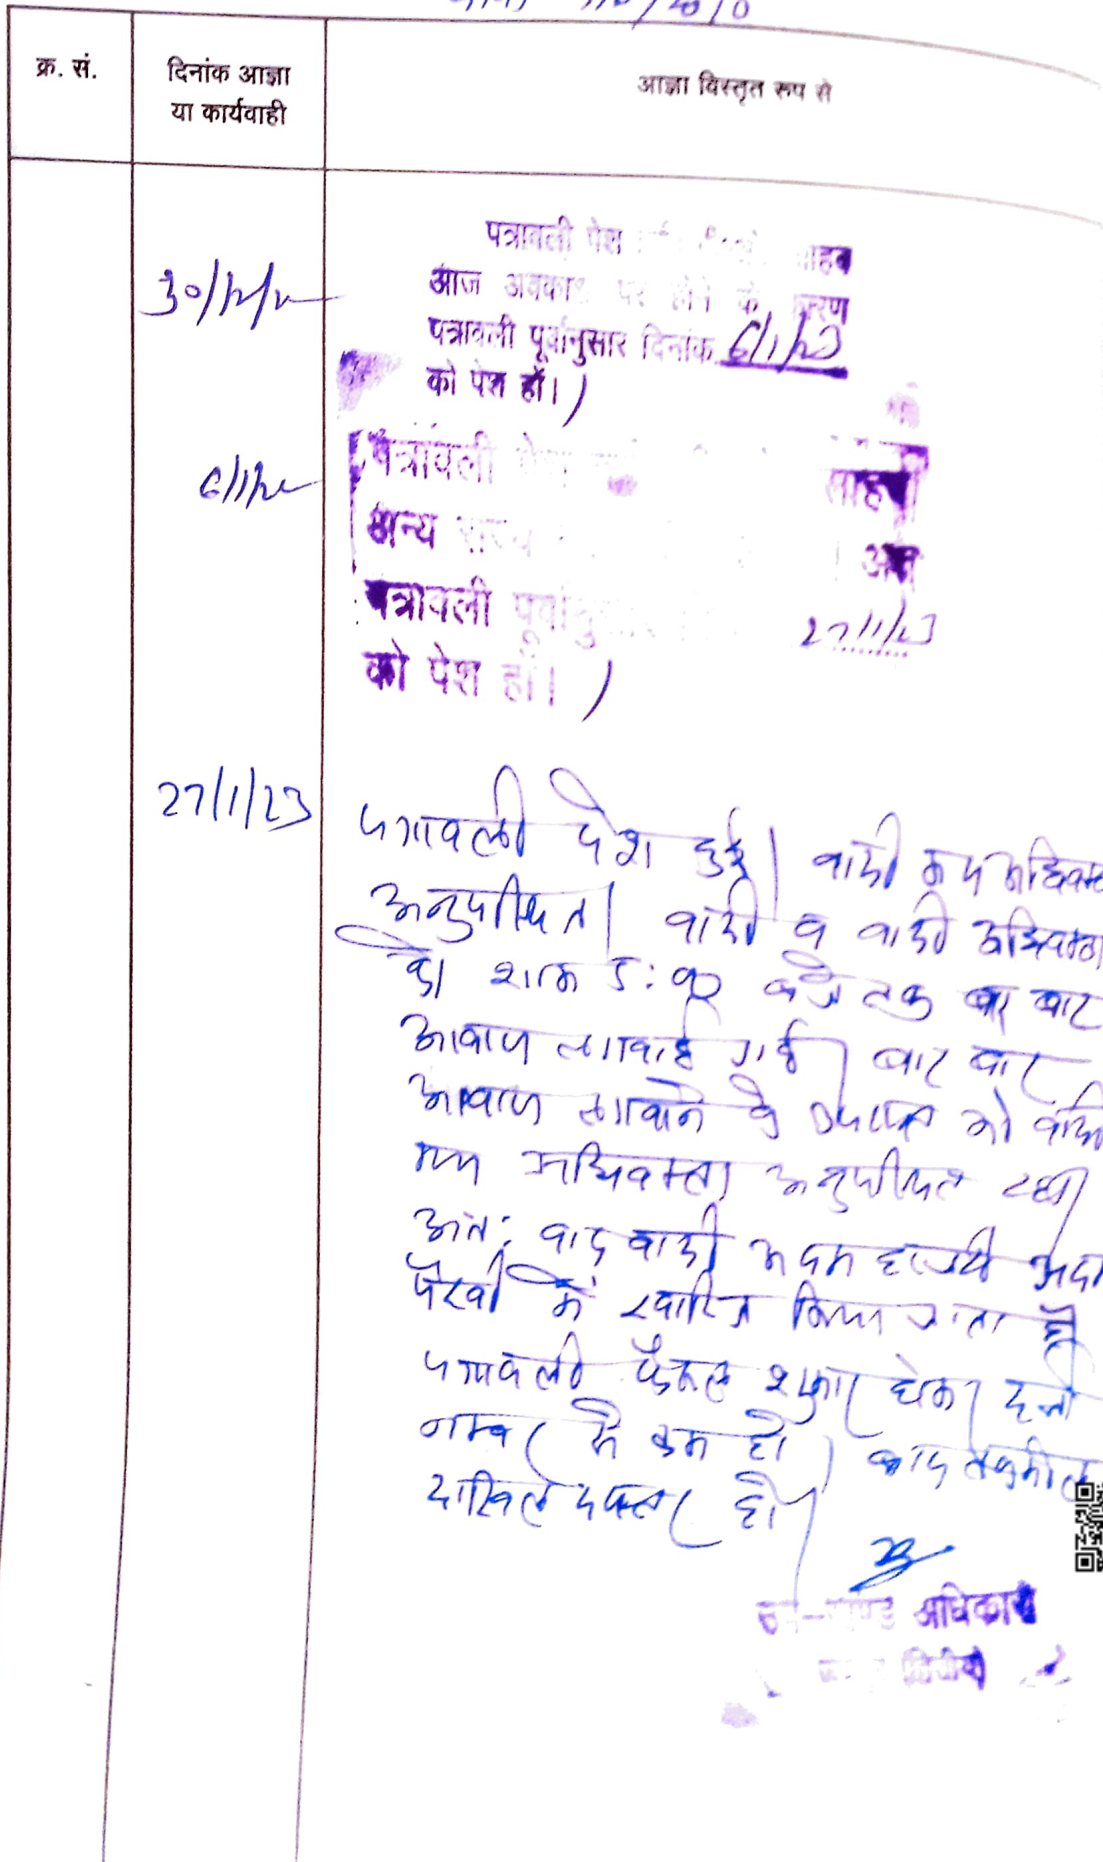 क्र. सं.
दिनांक आज्ञा
या कार्यवाही
आज्ञा विस्तृत रूप से
30/12/22
पत्रावली पेश साहब
आज अवकाश पर होने के कारण
पत्रावली पूर्वानुसार दिनांक 6/1/23
को पेश हों।
6/1/23
पत्रावली पेश साहब
अन्य राज्य अतः
पत्रावली पूर्वानुसार 27/1/23
को पेश हों।
27/1/23
पत्रावली पेश हुई। वादी मय अधिवक्ता
अनुपस्थित। वादी व वादी अधिवक्ता
को शाम 5: बजे तक बार बार
आवाज लगवाई गई। बार बार
आवाज लगवाने के उपरान्त भी वादी
मय अधिवक्ता अनुपस्थित रहे।
अतः वाद वादी अदम हाजरी अदम
पैरवी में खारिज किया जाता है
पत्रावली फैसल शुमार होकर दर्ज
नम्बर से कम हो। बाद तकमील
दाखिल दफ्तर हो।
उप-खण्ड अधिकारी
द्वितीय